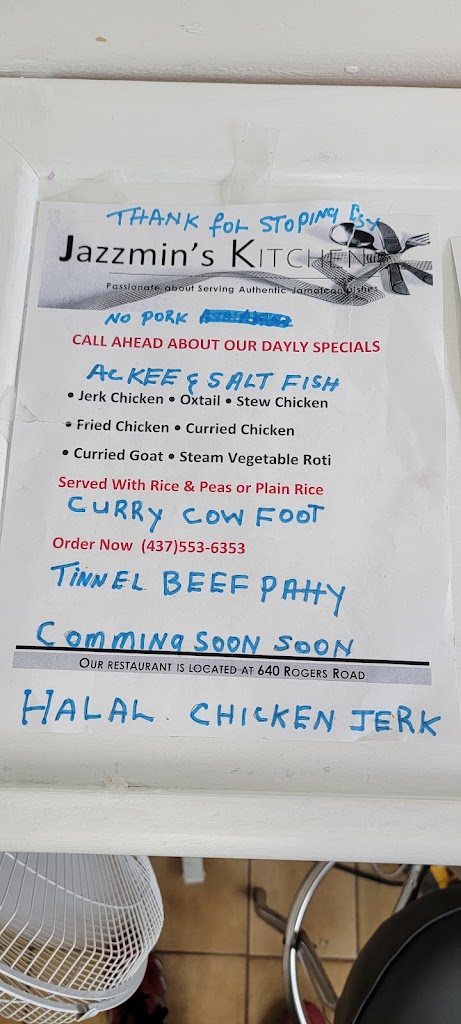 THANK foR STOPING By
JAZZMIN'S KITCHEN
Passionate about Serving Authentic Jamaican Dishes
NO PORK
CALL AHEAD ABOUT OUR DAYLY SPECIALS
ACKEE & SALT FISH
• Jerk Chicken • Oxtail • Stew Chicken
• Fried Chicken • Curried Chicken
• Curried Goat • Steam Vegetable Roti
Served With Rice & Peas or Plain Rice
CURRY COW FOOT
Order Now (437)553-6353
TINNEL BEEF PAttY
COMMING SOON SOON
OUR RESTAURANT IS LOCATED AT 640 ROGERS ROAD
HALAL. CHICKEN JERK